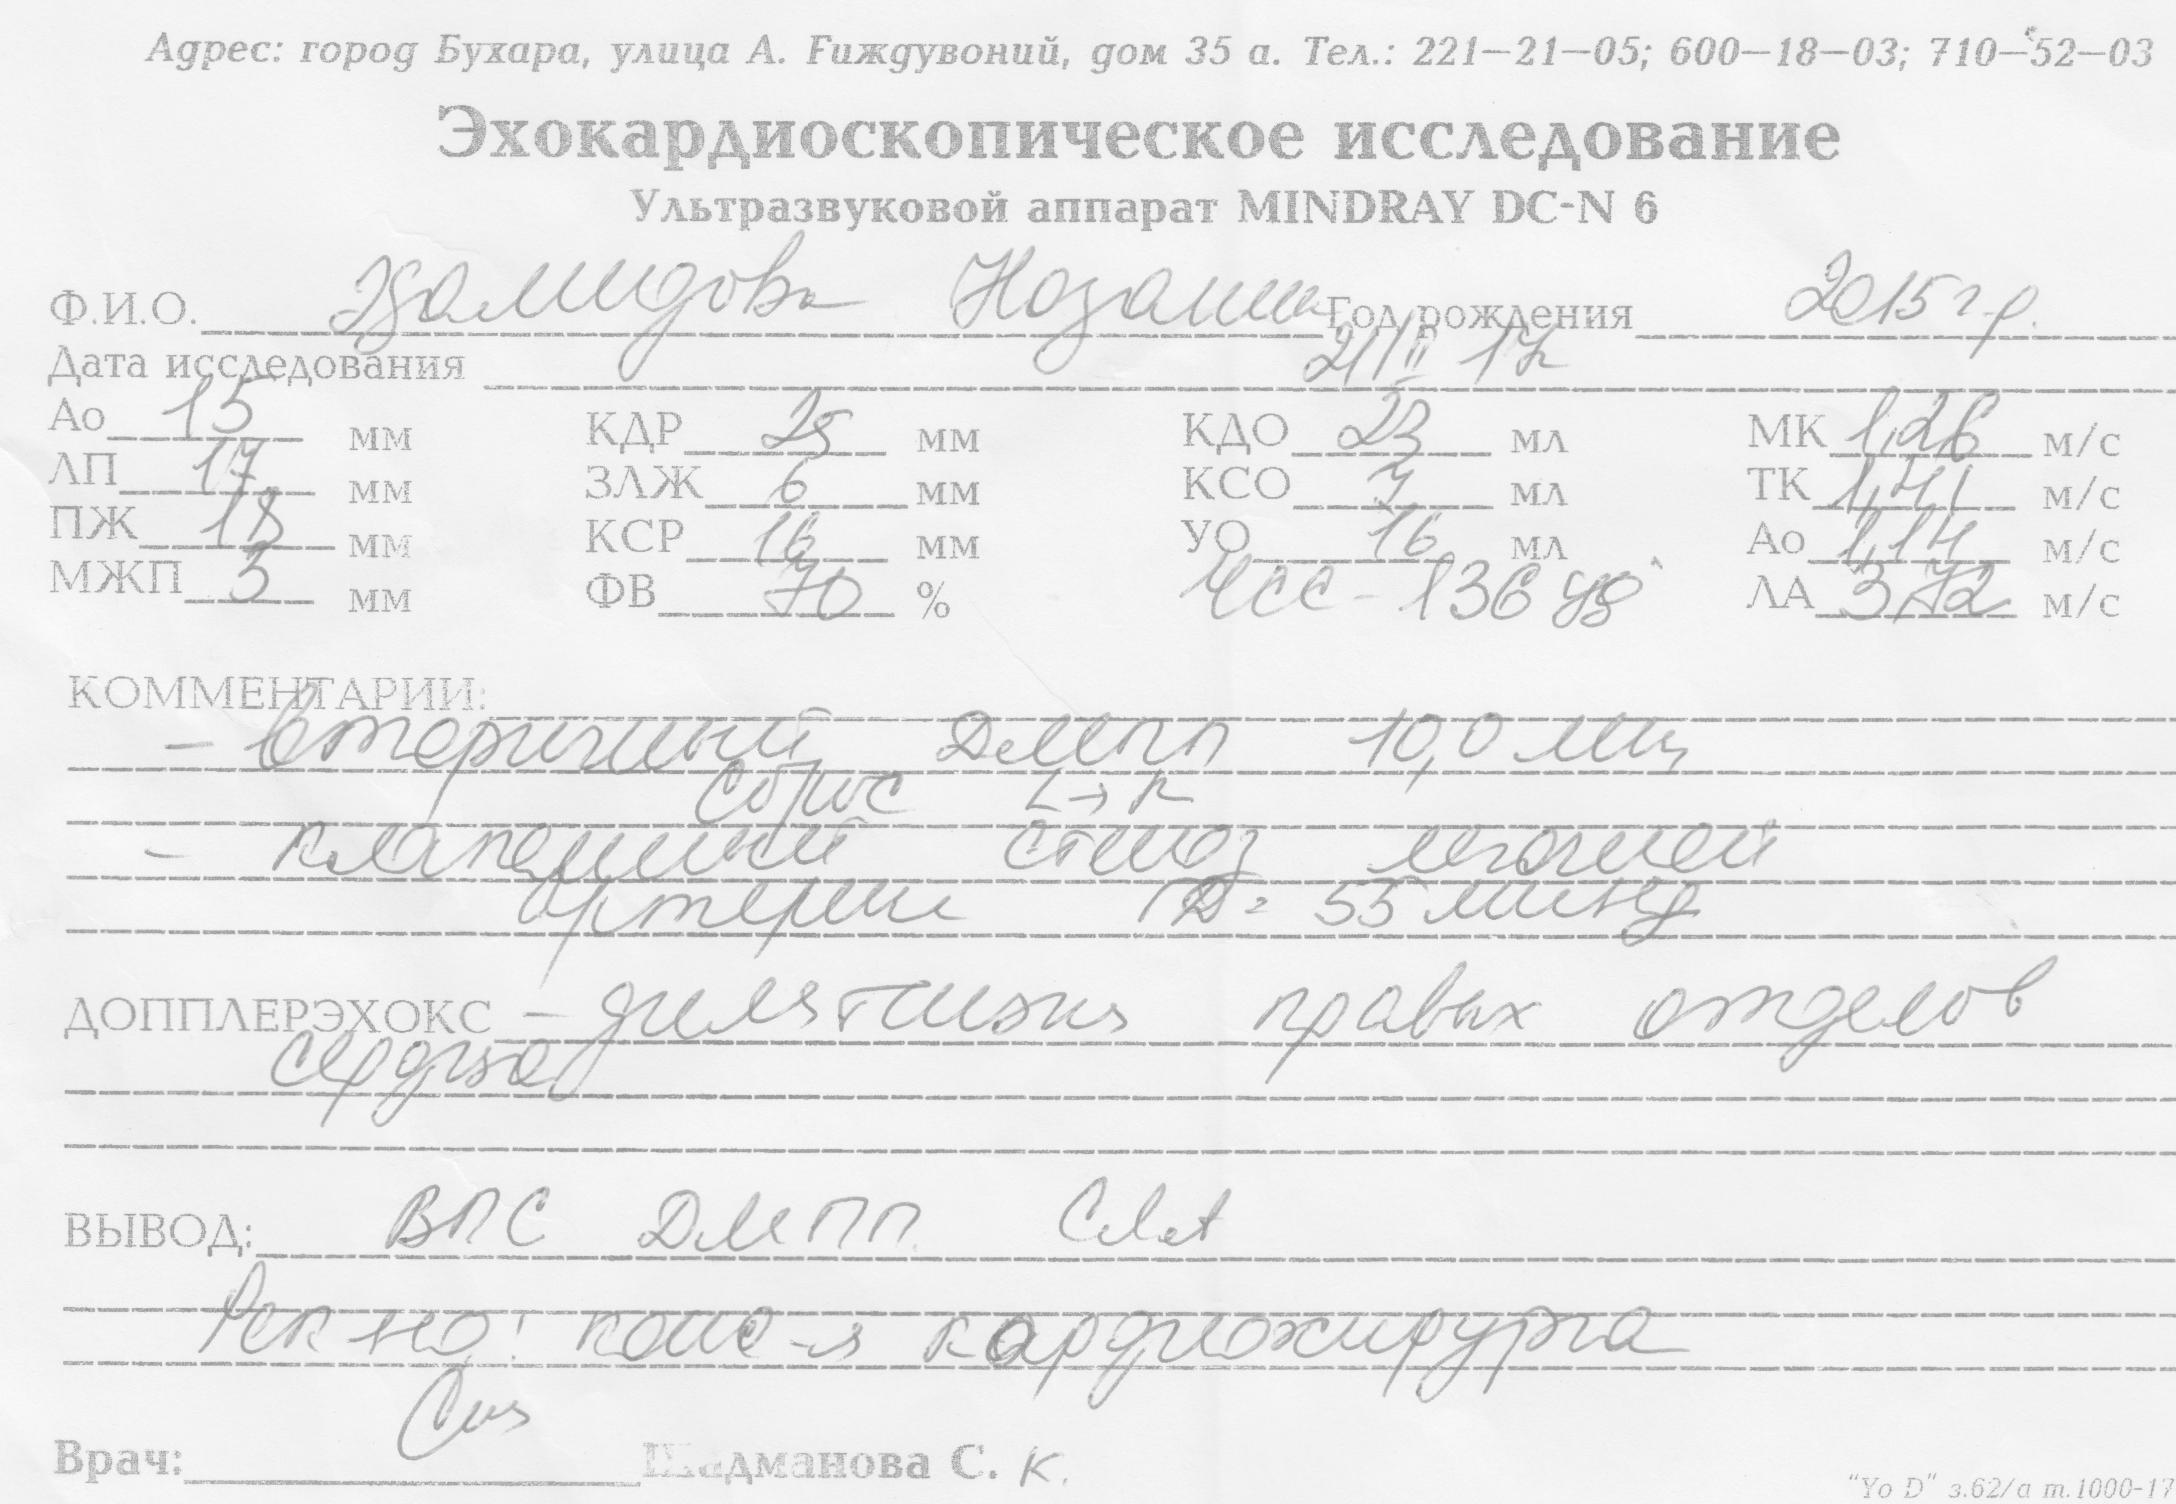 Адрес: город Бухара, улица А. Ғиждувоний, дом 35 а. Тел.: 221—21—05; 600—18—03; 710—52—03
Эхокардиоскопическое исследование
Ультразвуковой аппарат MINDRAY DC-N 6
Ф.И.О. Год рождения 2015 г.р.
Дата исследования 21/II 17г
Ао 15 мм КДР 25 мм КДО 23 мл МК 1,26 м/с
ЛП 17 мм ЗЛЖ 6 мм КСО 7 мл ТК 1,41 м/с
ПЖ 18 мм КСР 16 мм УО 16 мл Ао 1,14 м/с
МЖП 3 мм ФВ 70 % ЧСС - 136 уд ЛА 3,72 м/с
КОММЕНТАРИИ:
- вторичный ДМПП 10,0 мм
сброс L→R
- клапанный стеноз легочной
артерии ГД = 55 ммHg
ДОППЛЕРЭХОКС - дилятация правых отделов
сердца
ВЫВОД: ВПС ДМПП СЛА
Рек-но! конс-я кардиохирурга
Врач: Шадманова С. К.
"Yo D" з.62/а т.1000-17